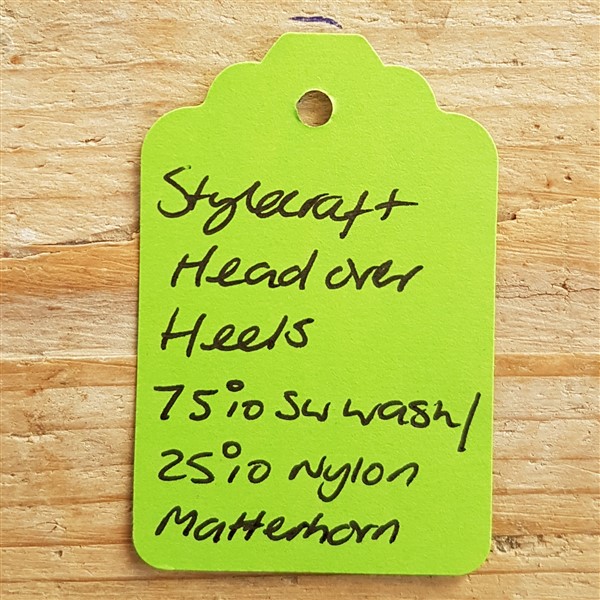 Stylecraft
Head over
Heels
75% SW wash/
25% Nylon
Matterhorn